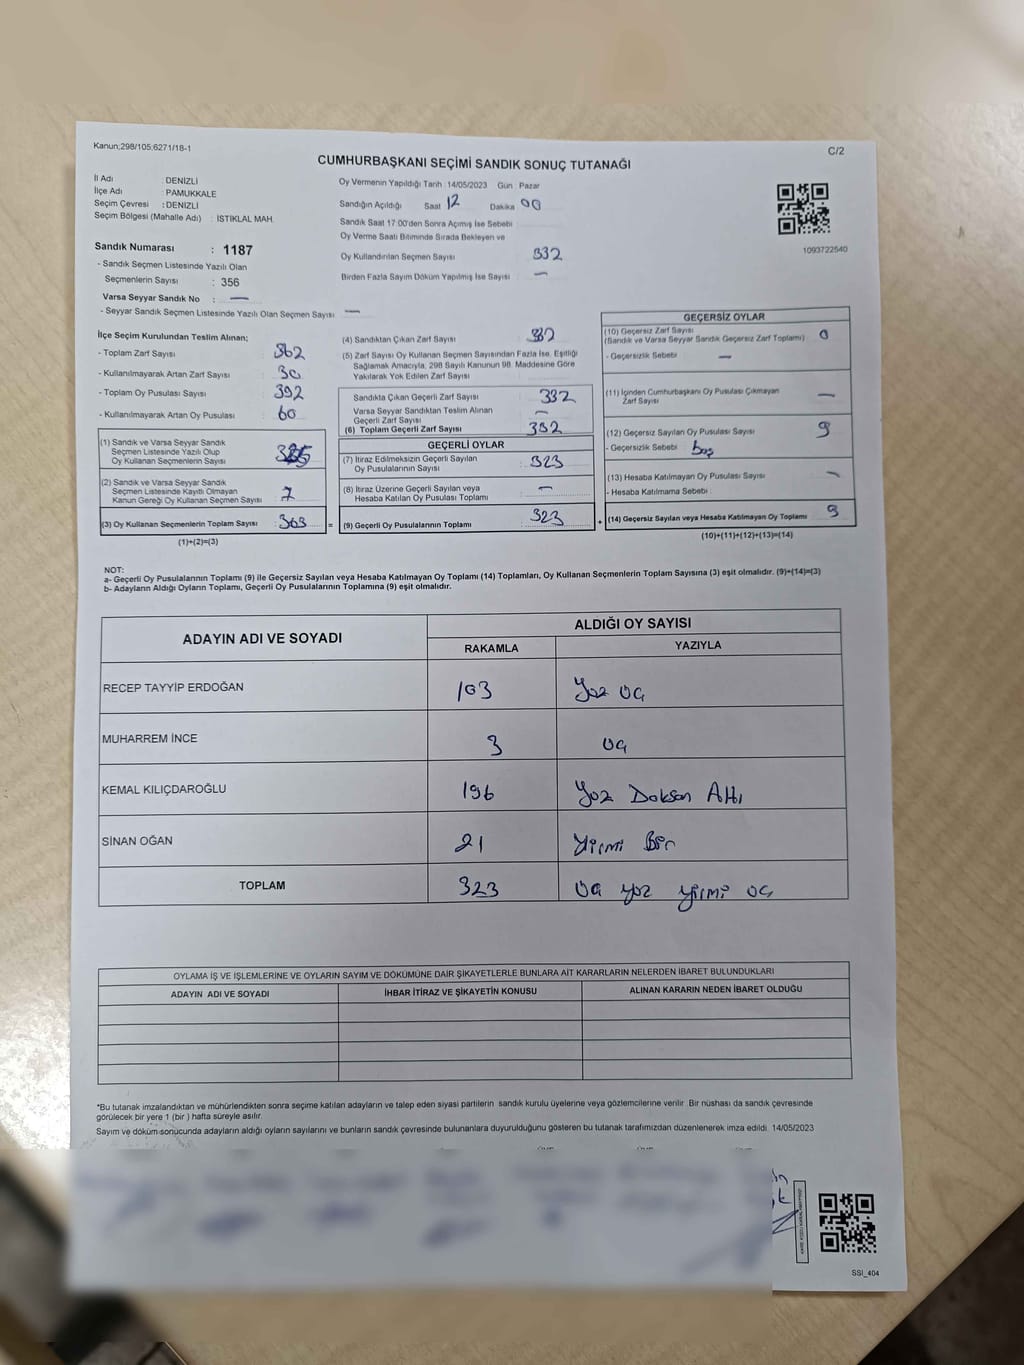 Kanun;298/105;6271/18-1
C/2
CUMHURBAŞKANI SEÇİMİ SANDIK SONUÇ TUTANAĞI
İl Adı : DENİZLİ
İlçe Adı : PAMUKKALE
Seçim Çevresi : DENİZLİ
Seçim Bölgesi (Mahalle Adı) : İSTİKLAL MAH.
Sandık Numarası : 1187
- Sandık Seçmen Listesinde Yazılı Olan
Seçmenlerin Sayısı : 356
Varsa Seyyar Sandık No : —
- Seyyar Sandık Seçmen Listesinde Yazılı Olan Seçmen Sayısı —
Oy Vermenin Yapıldığı Tarih : 14/05/2023 Gün : Pazar
Sandığın Açıldığı Saat 12 Dakika 00
Sandık Saat 17:00'den Sonra Açımış İse Sebebi
Oy Verme Saati Bitiminde Sırada Bekleyen ve
Oy Kullandırılan Seçmen Sayısı 332
Birden Fazla Sayım Döküm Yapılmış İse Sayısı —
1093722540
İlçe Seçim Kurulundan Teslim Alınan;
- Toplam Zarf Sayısı : 362
- Kullanılmayarak Artan Zarf Sayısı : 30
- Toplam Oy Pusulası Sayısı : 392
- Kullanılmayarak Artan Oy Pusulası : 60
(1) Sandık ve Varsa Seyyar Sandık
Seçmen Listesinde Yazılı Olup
Oy Kullanan Seçmenlerin Sayısı
(2) Sandık ve Varsa Seyyar Sandık
Seçmen Listesinde Kayıtlı Olmayan
Kanun Gereği Oy Kullanan Seçmen Sayısı : 7
(3) Oy Kullanan Seçmenlerin Toplam Sayısı : 363 =
(1)+(2)=(3)
(4) Sandıktan Çıkan Zarf Sayısı : 332
(5) Zarf Sayısı Oy Kullanan Seçmen Sayısından Fazla İse, Eşitliği
Sağlamak Amacıyla, 298 Sayılı Kanunun 98. Maddesine Göre
Yakılarak Yok Edilen Zarf Sayısı
Sandıkta Çıkan Geçerli Zarf Sayısı : 332
Varsa Seyyar Sandıktan Teslim Alınan
Geçerli Zarf Sayısı : —
(6) Toplam Geçerli Zarf Sayısı : 332
GEÇERLİ OYLAR
(7) İtiraz Edilmeksizin Geçerli Sayılan
Oy Pusulalarının Sayısı : 323
(8) İtiraz Üzerine Geçerli Sayılan veya
Hesaba Katılan Oy Pusulası Toplamı : —
(9) Geçerli Oy Pusulalarının Toplamı : 323 +
GEÇERSİZ OYLAR
(10) Geçersiz Zarf Sayısı
(Sandık ve Varsa Seyyar Sandık Geçersiz Zarf Toplamı) : 0
- Geçersizlik Sebebi —
(11) İçinden Cumhurbaşkanı Oy Pusulası Çıkmayan
Zarf Sayısı : —
(12) Geçersiz Sayılan Oy Pusulası Sayısı : 9
- Geçersizlik Sebebi boş
(13) Hesaba Katılmayan Oy Pusulası Sayısı : —
- Hesaba Katılmama Sebebi :
(14) Geçersiz Sayılan veya Hesaba Katılmayan Oy Toplamı : 9
(10)+(11)+(12)+(13)=(14)
NOT:
a- Geçerli Oy Pusulalarının Toplamı (9) ile Geçersiz Sayılan veya Hesaba Katılmayan Oy Toplamı (14) Toplamları, Oy Kullanan Seçmenlerin Toplam Sayısına (3) eşit olmalıdır. (9)+(14)=(3)
b- Adayların Aldığı Oyların Toplamı, Geçerli Oy Pusulalarının Toplamına (9) eşit olmalıdır.
ADAYIN ADI VE SOYADI
ALDIĞI OY SAYISI
RAKAMLA YAZIYLA
RECEP TAYYİP ERDOĞAN 103 Yüz üç
MUHARREM İNCE 3 üç
KEMAL KILIÇDAROĞLU 196 Yüz Doksan Altı
SİNAN OĞAN 21 Yirmi Bir
TOPLAM 323 üç yüz yirmi üç
OYLAMA İŞ VE İŞLEMLERİNE VE OYLARIN SAYIM VE DÖKÜMÜNE DAİR ŞİKAYETLERLE BUNLARA AİT KARARLARIN NELERDEN İBARET BULUNDUKLARI
ADAYIN ADI VE SOYADI İHBAR İTİRAZ VE ŞİKAYETİN KONUSU ALINAN KARARIN NEDEN İBARET OLDUĞU
*Bu tutanak imzalandıktan ve mühürlendikten sonra seçime katılan adayların ve talep eden siyasi partilerin sandık kurulu üyelerine veya gözlemcilerine verilir. Bir nüshası da sandık çevresinde
görülecek bir yere 1 (bir ) hafta süreyle asılır.
Sayım ve döküm sonucunda adayların aldığı oyların sayılarını ve bunların sandık çevresinde bulunanlara duyurulduğunu gösteren bu tutanak tarafımızdan düzenlenerek imza edildi. 14/05/2023
SSI_404